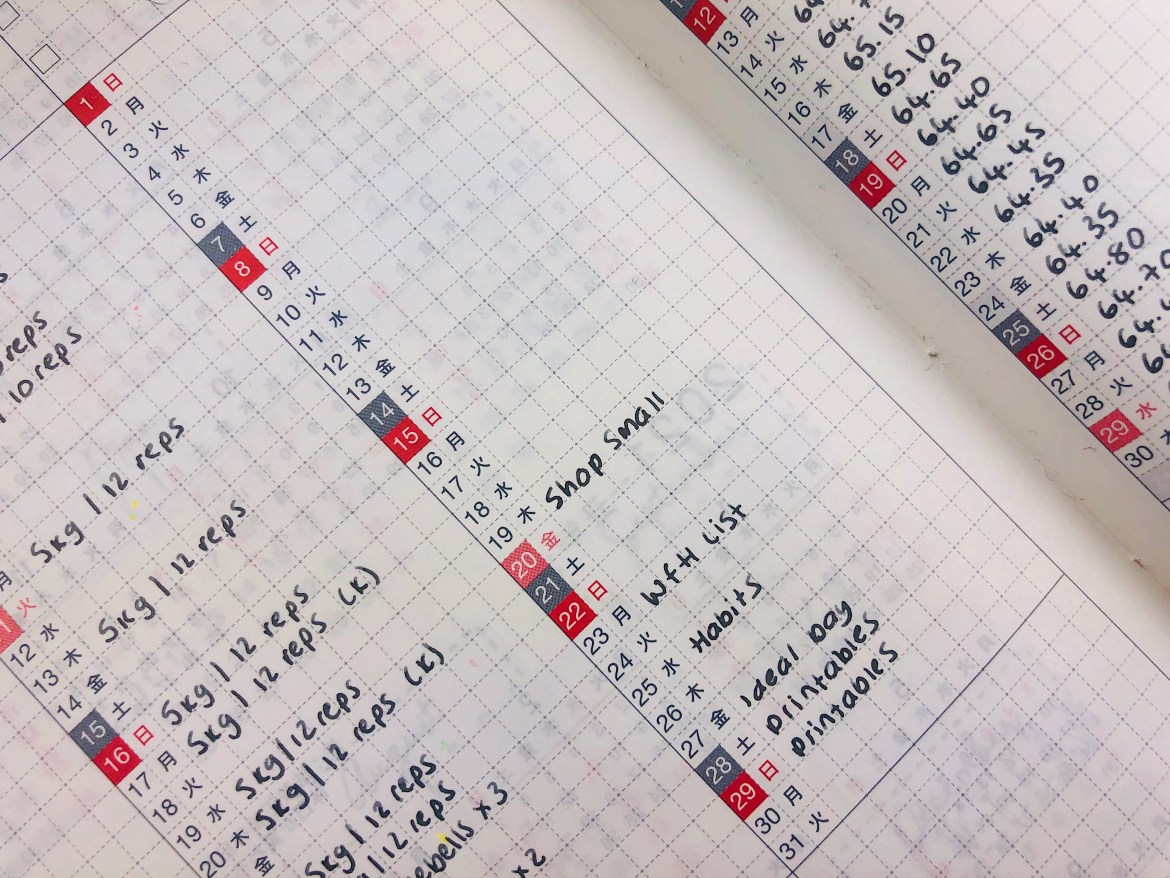 reps
10 reps
月 5kg | 12 reps
火
12 水
13 木 5kg | 12 reps
14 金
15 土
16 日 5kg | 12 reps
17 月 5kg | 12 reps (K)
18 火
19 水 5kg | 12 reps
20 木 5kg | 12 reps (K)
金
5kg | 12 reps
| 12 reps
ebells x3
x2
1 日
2 月
3 火
4 水
5 木
6 金
7 土
8 日
9 月
10 火
11 水
12 木
13 金
14 土
15 日
16 月
17 火
18 水
19 木 Shop small
20 金
21 土
22 日
23 月 WFH List
24 火
25 水 Habits
26 木
27 金 Ideal Day
28 土 Printables
29 日 Printables
30 月
31 火
12
13 月
14 火
15 水 65.15
16 木 65.10
17 金 64.65
18 土 64.40
19 日 64.65
20 月 64.45
21 火 64.35
22 水 64.40
23 木 64.35
24 金 64.80
25 土 64.70
26 日
27 月
28 火
29 水
30